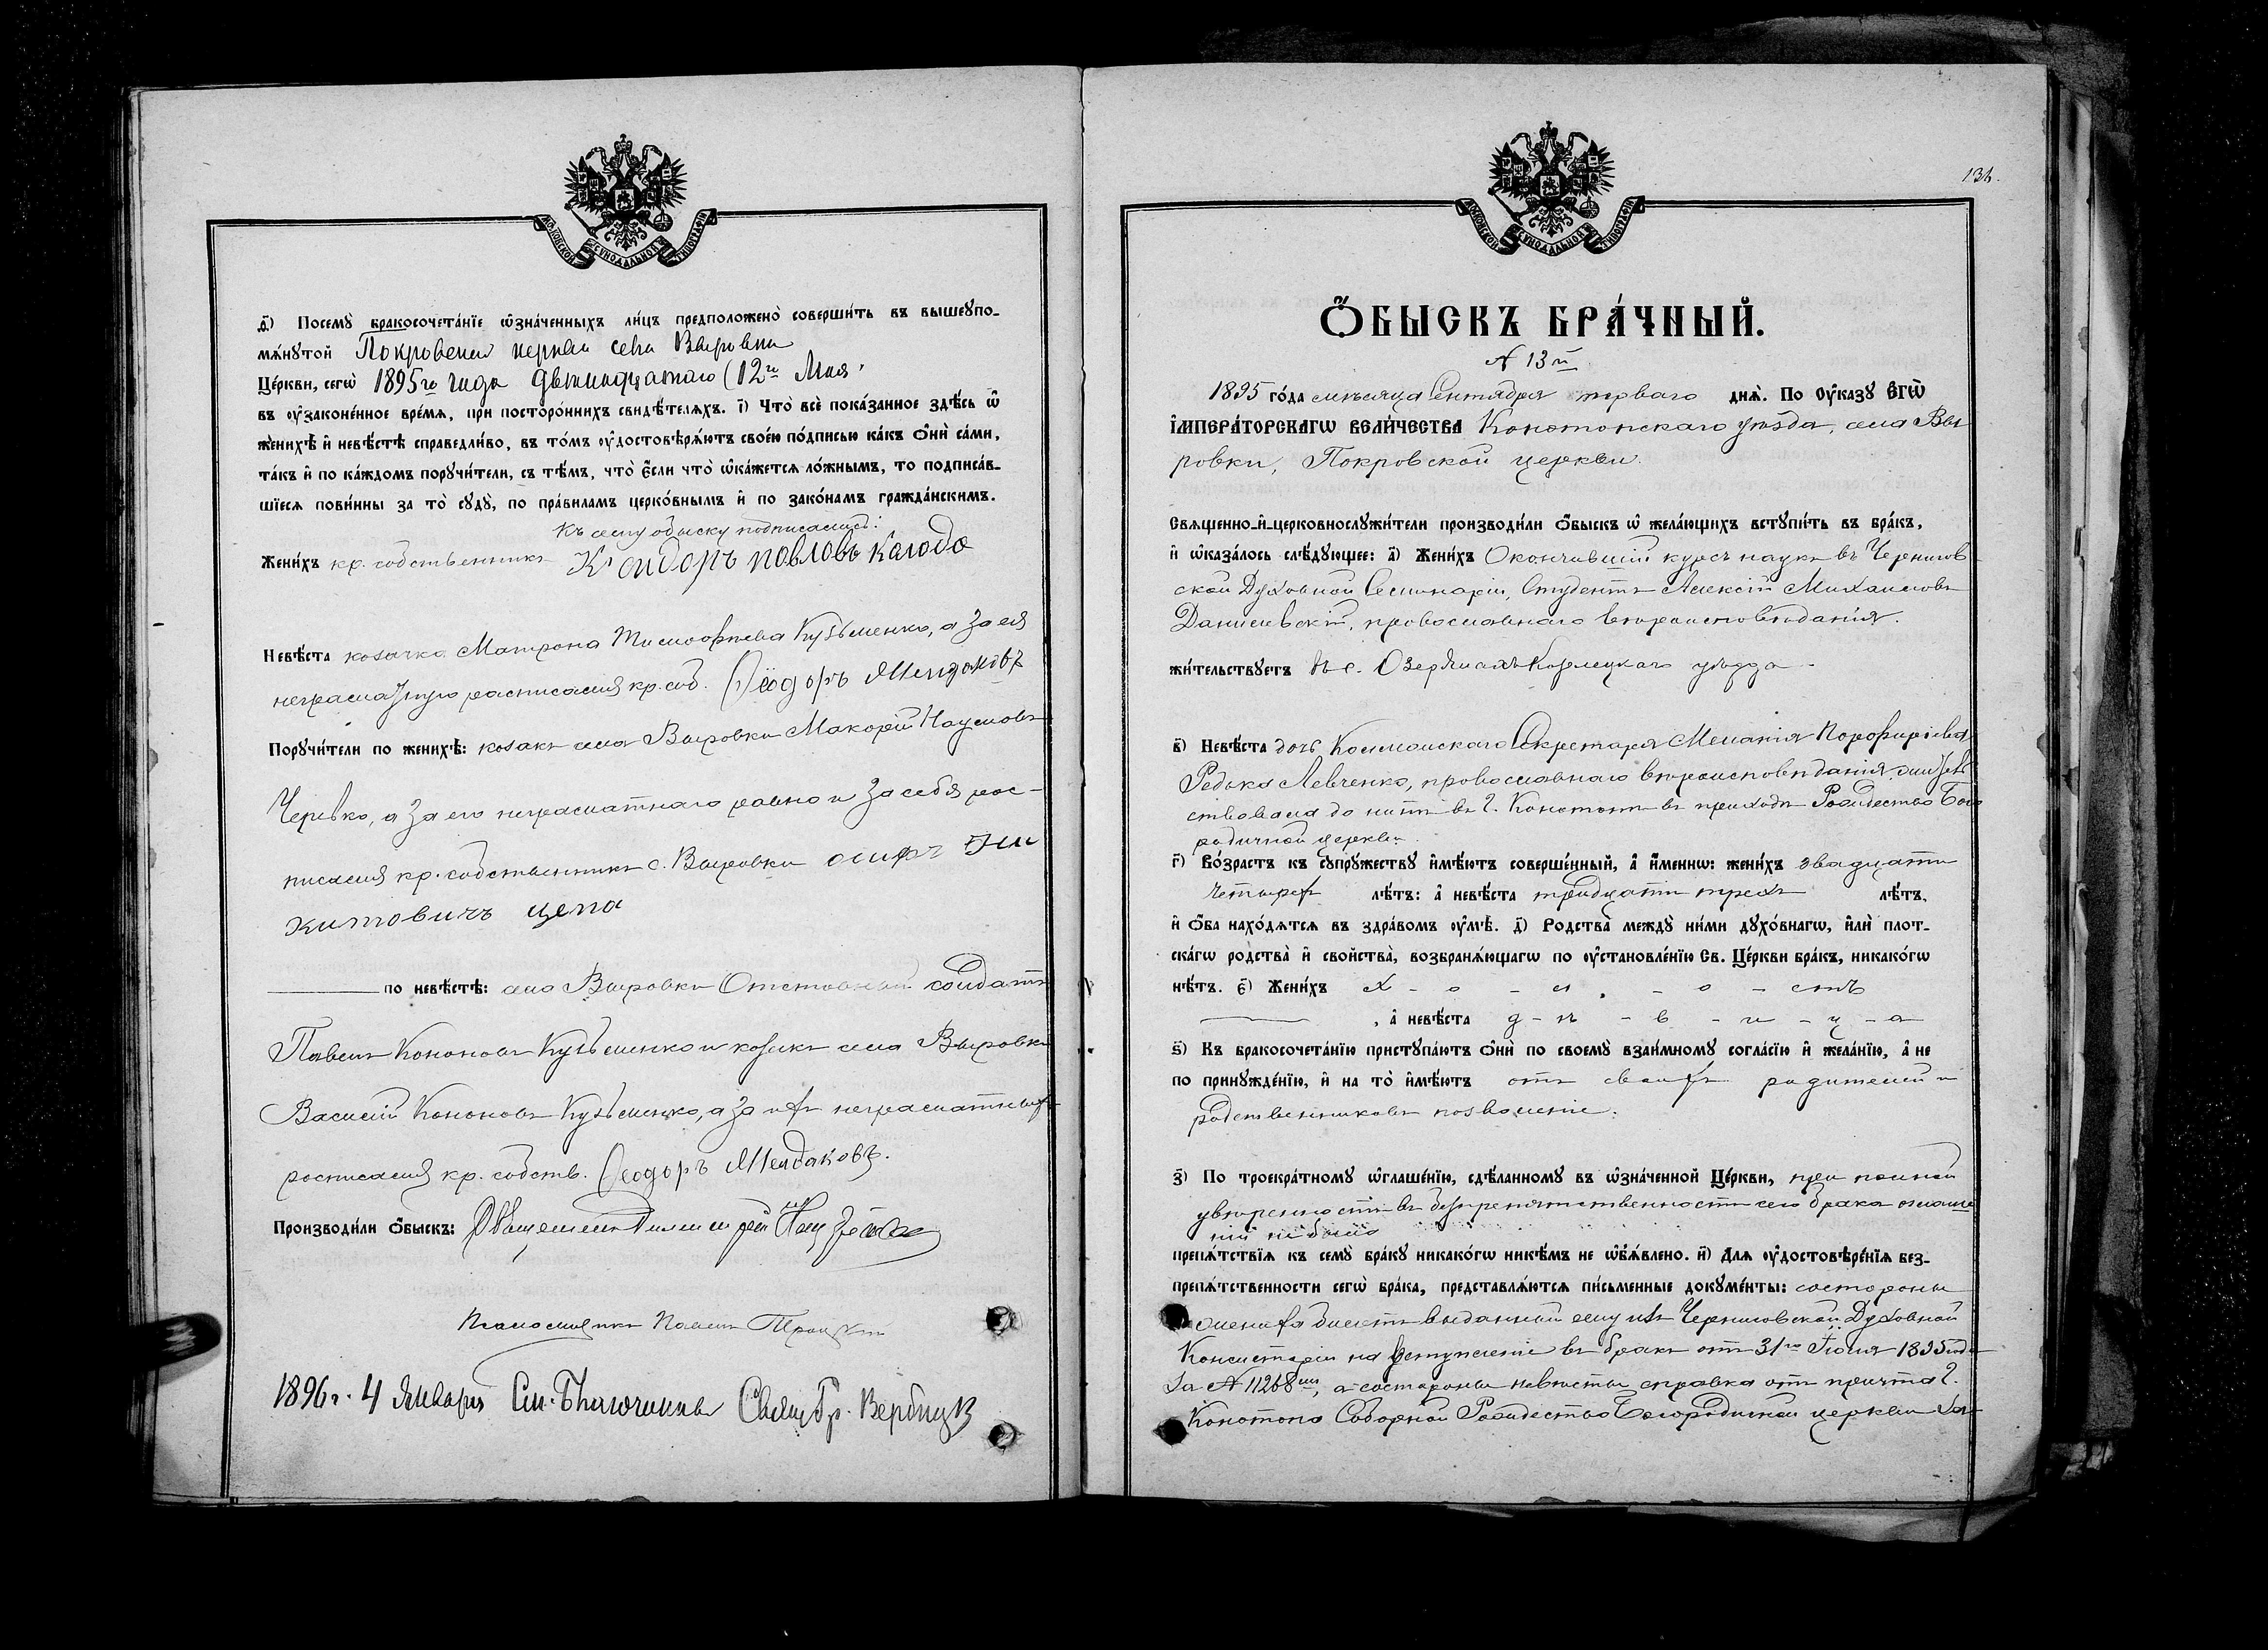 МОСКОВСКОЙ СѴНОДАЛЬНОЙ ТИПОГРАФІИ
д҃і) Посемꙋ̀ бракосочета́нїе ѡ҆зна́ченныхъ ли́цъ предположено̀ соверши́ть въ вышеꙋпо-
мѧ́нꙋтой Покровской церкви села Выровки
Це́ркви, сегѡ̀ 1895го года двенадцатаго (12го Мая
въ ᲂу҆законе́нное вре́мѧ, при посторо́ннихъ свидѣ́телѧхъ. і҃) Что̀ всѐ пока́занное здѣ́сь ѿ
женихѣ̀ и҆ невѣ́стѣ справедли́во, въ то́мъ ᲂу҆достовѣрѧ́ютъ свое́ю по́дписью ка́къ ѻ҆нѝ са́ми,
та́къ и҆ по ка́ждомъ порꙋчи́тели, съ тѣ́мъ, что̀ є҆́сли что̀ ѡ҆ка́жетсѧ ло́жнымъ, то подписа́в-
шїесѧ пови́нны за то̀ сꙋдꙋ̀, по пра́виламъ церко́внымъ и҆ по зако́намъ гражда́нскимъ.
Къ сему обыску подписались:
Жени́хъ кр. собственникъ Сидоръ Павловъ
Невѣ́ста козачка Матрона Тимофеева Кузьменко, а за ея
неграматную расписался кр. соб. Ѳеодоръ
Порꙋчи́тели по женихѣ̀: козакъ села Выровки Макарій Наумовъ
Черевко, а за его неграматнаго равно и за себя рос-
писался кр. собственникъ с. Выровки осифъ
китовичъ цепа
по невѣ́стѣ: села Выровки Отставной солдатъ
Павелъ Кононовъ Кузьменко и козакъ села Выровки
Василій Кононовъ Кузьменко, а за ихъ неграматныхъ
росписался кр. собств. Ѳеодоръ
Производи́ли ѻ҆́быскъ: Священникъ
Псаломщикъ Павелъ Троицкій
1896г. 4 Января См. Благочинный Свящ. Гр. Вербицк
МОСКОВСКОЙ СѴНОДАЛЬНОЙ ТИПОГРАФІИ
Ѻ҆́БЫСКЪ БРА́ЧНЫЙ.
№ 13й
1895 го́да мѣсяца Сентября перваго днѧ̀. По Оу҆казꙋ Єгѡ̀
І҆мпера́торскагѡ Вели́чества Конотопскаго уѣзда, села Вы-
ровки, Покровской церкви
Свѧщенно-и҆-церковнослꙋжи́тели производи́ли ѻ҆́быскъ ѡ҆ жела́ющихъ встꙋпи́ть въ бра́къ,
и҆ ѡ҆каза́лось слѣ́дꙋющее: а҃) Жени́хъ Окончившій курсъ наукъ въ Чернигов-
ской Духовной Семинаріи, Студентъ Алексій Михаиловъ
Данилевскій, православнаго вѣроисповѣданія.
жи́тельствꙋетъ въ с. Озерянахъ Козелецкаго уѣзда
в҃) Невѣ́ста дочь Коллежскаго Секретаря Меланія Порфиріева
Редько Левченко, православнаго вѣроисповѣданія, житель-
ствовала до нынѣ въ г. Конотопѣ въ приходѣ Рождество Бого
родичной церкви.
г҃) Во́зрастъ къ сꙋпрꙋ́жествꙋ и҆мѣ́ютъ соверше́нный, а҆ и҆́меннѡ: жени́хъ двадцати
четырехъ лѣ́тъ: а҆ невѣ́ста тридцати трехъ лѣ́тъ,
и҆ ѻ҆́ба нахо́дѧтсѧ въ здра́вомъ ᲂу҆мѣ̀. д҃) Родства̀ междꙋ̀ ни́ми дꙋхо́внагѡ, и҆лѝ плот-
ска́гѡ родства̀ и҆ сво́йства̀, возбранѧ́ющагѡ по ᲂу҆становле́нїю Св. Це́ркви бра́къ, никако́гѡ
нѣ́тъ. є҃) Жени́хъ х - о - л - о - стъ
, а҆ невѣ́ста д - ѣ - в - и - ц - а
ѕ҃) Къ бракосочета́нїю пристꙋпа́ютъ ѻ҆нѝ по своемꙋ̀ взаи́мномꙋ согла́сїю и҆ жела́нїю, а҆ не
по принꙋжде́нїю, и҆ на то̀ и҆мѣ́ютъ отъ своихъ родителей и
родственниковъ позволеніе.
з҃) По троекра́тномꙋ ѡ҆глаше́нїю, сдѣ́ланномꙋ въ ѡ҆зна́ченной Це́ркви, при полной
увѣренности въ безпрепятственности сего брака оглаше
ній не было
препѧ́тствїѧ къ семꙋ̀ бра́кꙋ никако́гѡ никѣ́мъ не ѡ҆б̾ѧ́влено. и҃) Длѧ ᲂу҆достовѣре́нїѧ без-
препѧ́тственности сегѡ̀ бра́ка, представлѧ́ютсѧ пи́сьменные докꙋме́нты: со стороны
жениха билетъ выданный ему изъ Черниговской Духовной
Консисторіи на вступленіе въ бракъ отъ 31го Іюля 1895 года
за № 11268мъ, а со стороны невѣсты справка отъ причта г.
Конотопа Соборной Рождество Богородичной церкви